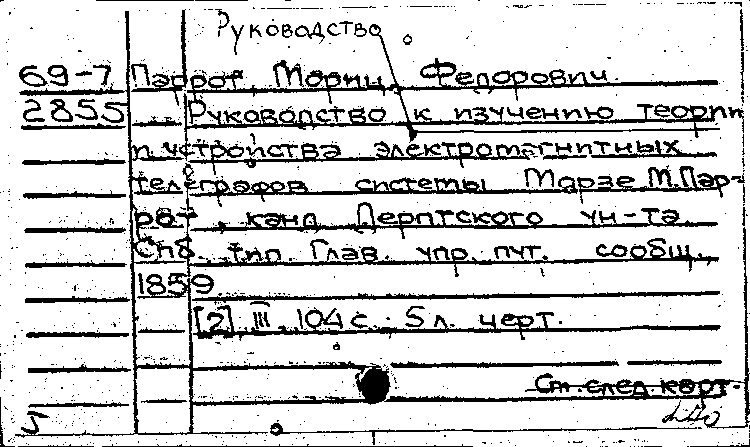 Руководство
69-7 Паррот, Мориц Федорович.
2855 Руководство к изучению теории
и устройства электромагнитных
телеграфов системы Морзе М. Пар-
рот, канд. Дерптского ун-та.
Спб. тип. Глав. упр. пут. сообщ.,
1859
[2], III, 104 с. 5 л. черт.
См. след. карт.